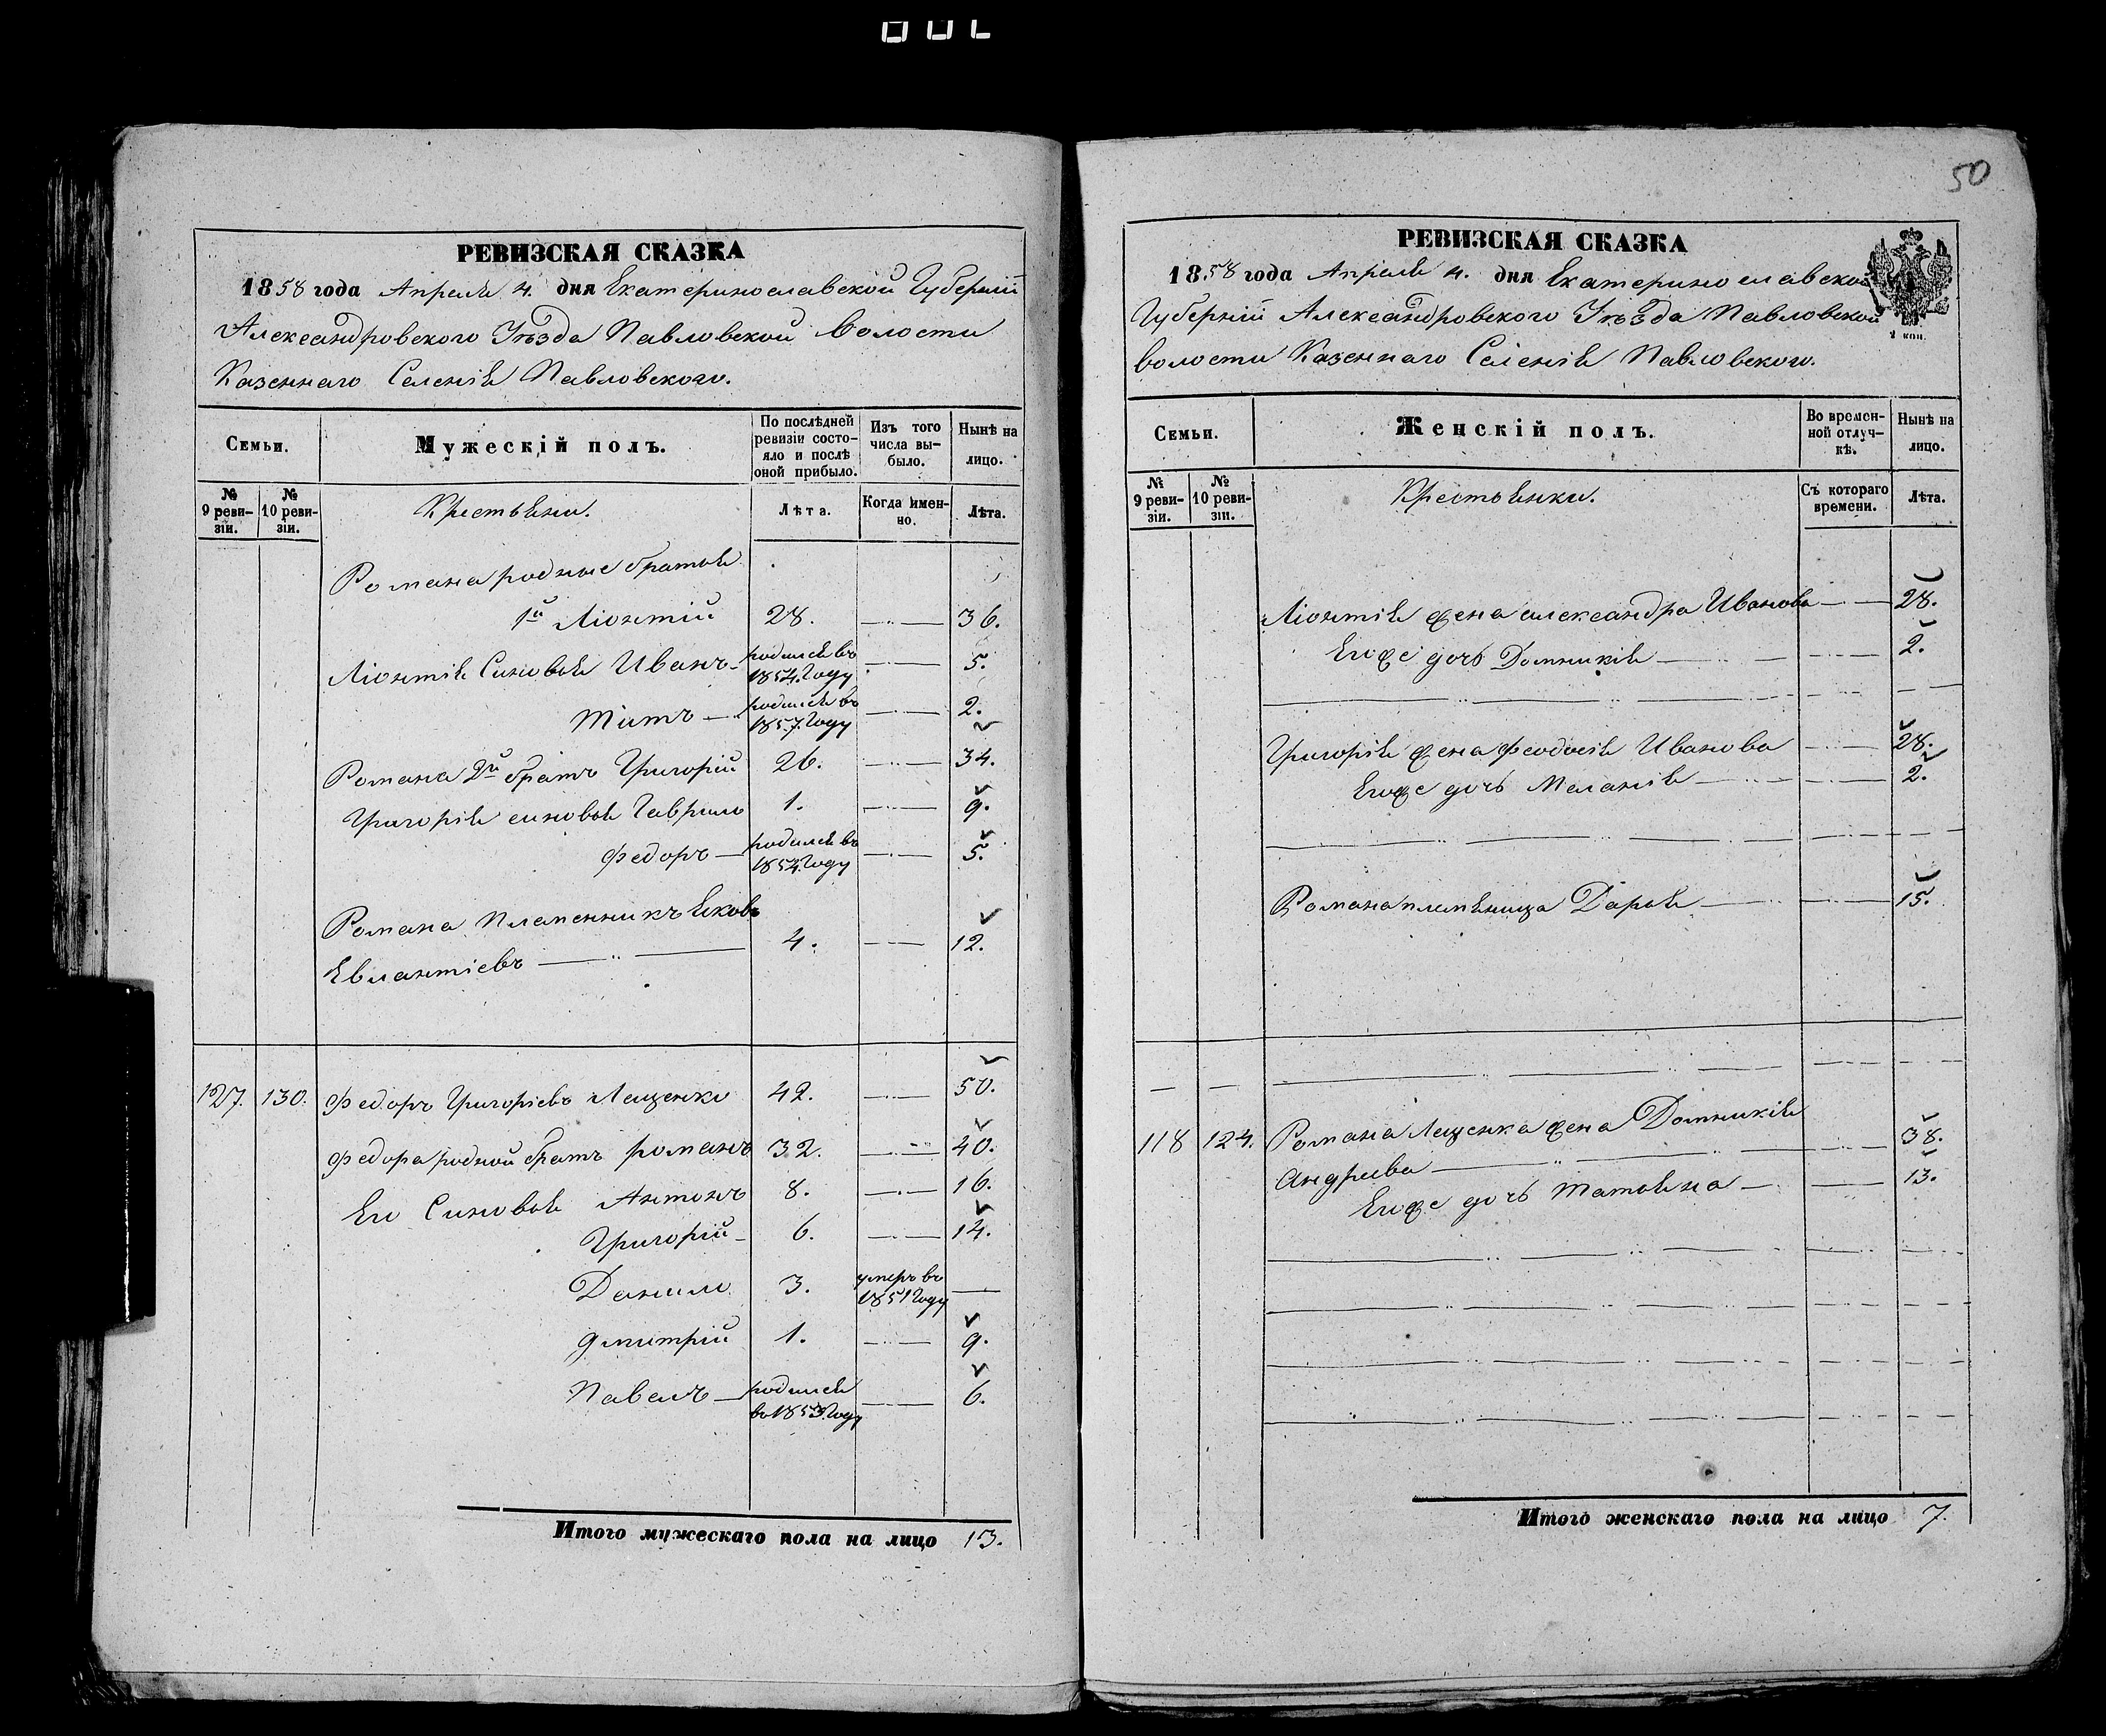 РЕВИЗСКАЯ СКАЗКА
1858 года Апреля 4. дня Екатеринославской Губерніи
Александровского Уѣзда Павловской Волости
Казеннаго Селенія Павловского.
Семьи. Мужескій полъ. По послѣдней ревизіи состояло и послѣ оной прибыло. Изъ того числа выбыло. Нынѣ на лицо.
№ 9 ревизіи. № 10 ревизіи. Крестьяни. Лѣта. Когда именно. Лѣта.
Романа родные братья
1й Ліонтій 28. 36.
Ліонтія Синовья Иванъ родился въ 1854. Году 5.
Титъ родился въ 1857. Году 2.
Романа 2й братъ Григорій 26. 34.
Григорія синовья Гаврило 1. 9.
Федоръ родился въ 1854. Году 5.
Романа Племенникъ Яковъ
Евлантіевъ 4. 12.
127. 130. Федоръ Григоріевъ Лещенко 42. 50.
Федора родной братъ романъ 32. 40.
Его Синовья Антонъ 8. 16.
Григорій 6. 14.
Данило 3. умеръ въ 1851 Году
дмитрій 1. 9.
Павелъ родился въ 1853. Году 6.
Итого мужескаго пола на лицо 13.
50
РЕВИЗСКАЯ СКАЗКА
1858 года Апреля 4. дня Екатеринославской
Губерніи Александровского Уѣзда Павловской
волости Казеннаго Селенія Павловского.
Семьи. Женскій полъ. Во временной отлучкѣ. Нынѣ на лицо.
№ 9 ревизіи. № 10 ревизіи. Крестьянки. Съ котораго времени. Лѣта.
Ліонтія жена александра Иванова 28.
Егоже дочь Домникія 2.
Григорія жена феодосія Иванова 28.
Егоже дочь Меланія 2.
Романа племѣница Дарья 15.
118 124. Романа Лещенка жена Домникія
андреева 38.
Егоже дочь татьяна 13.
Итого женскаго пола на лицо 7.